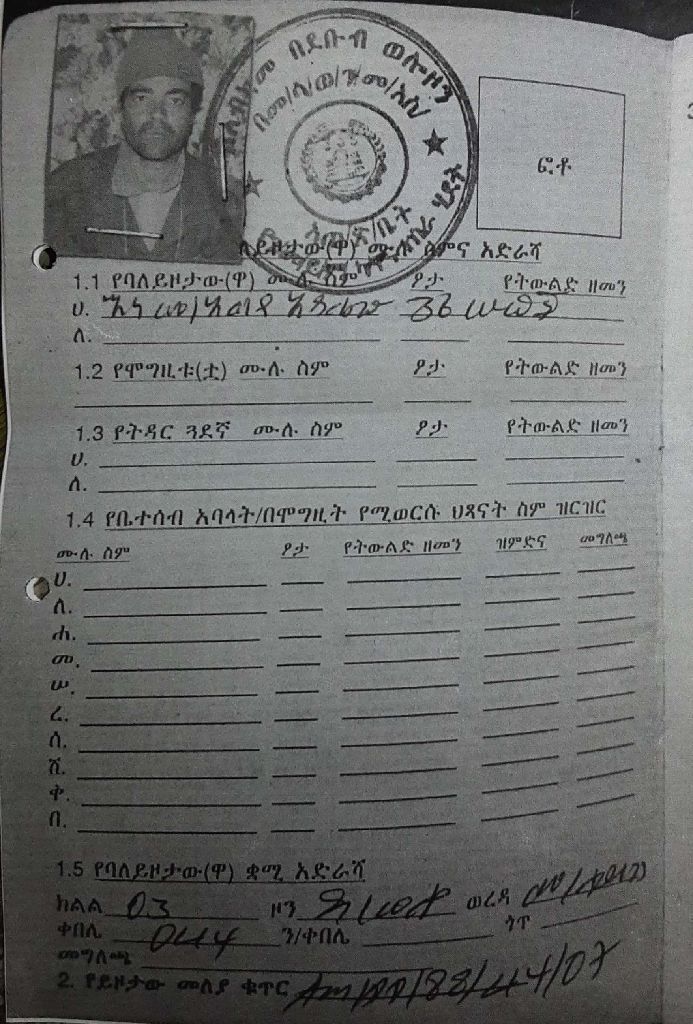 በደቡብ ወሎ ዞን
ፎቶ
ሙሉ ስምና አድራሻ
1.1 የባለይዞታው(ዋ) ሙሉ ስም ፆታ የትውልድ ዘመን
ሀ.
ለ.
1.2 የሞግዚቱ(ቷ) ሙሉ ስም ፆታ የትውልድ ዘመን
1.3 የትዳር ጓደኛ ሙሉ ስም ፆታ የትውልድ ዘመን
ሀ.
ለ.
1.4 የቤተሰብ አባላት/በሞግዚት የሚወርሱ ህጻናት ስም ዝርዝር
ሙሉ ስም ፆታ የትውልድ ዘመን ዝምድና መግለጫ
ሀ.
ለ.
ሐ.
መ.
ሠ.
ረ.
ሰ.
ሸ.
ቀ.
በ.
1.5 የባለይዞታው(ዋ) ቋሚ አድራሻ
ክልል 03 ዞን ደ/ወሎ ወረዳ
ቀበሌ 044 ን/ቀበሌ ጎጥ
መግለጫ
2. የይዞታው መለያ ቁጥር